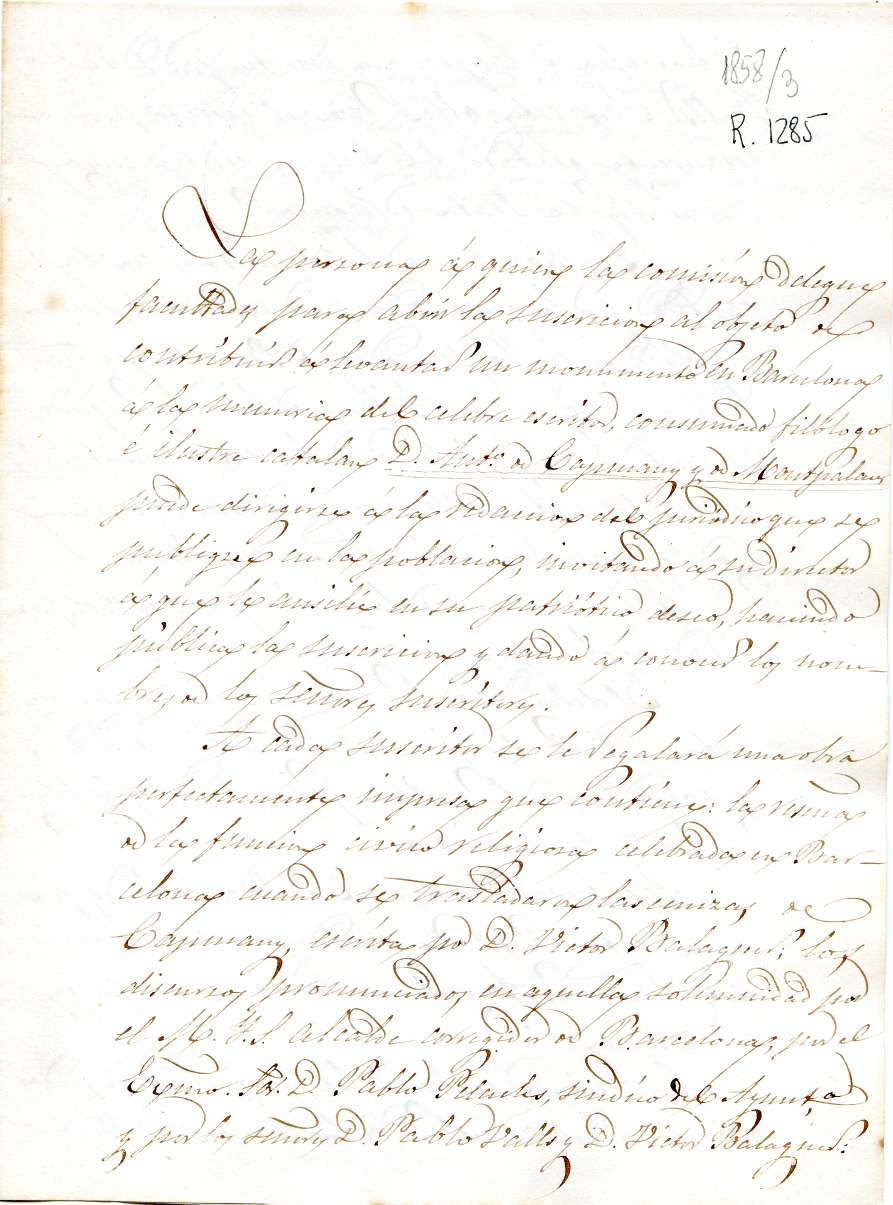 1858/3
R. 1285
Las personas á quienes la comision delegue
facultades para abrir la suscricion al objeto de
contribuir á levantar un monumento en Barcelona
á la memoria del celebre escritor, consumado filólogo
é ilustre catalan D. Antº de Capmany y de Montpalau
puede dirigirse á la redaccion del periódico que se
publique en la poblacion, invitando á su director
á que le ausilie en su patriótico deseo, haciendo
pública la suscricion y dando á conocer los nom-
bres de los señores suscritores.
A cada suscritor se le regalará una obra
perfectamente impresa que contiene: la reseña
de la funcion civico religiosa celebrada en Bar-
celona cuando se trasladaron las cenizas de
Capmany, escrita por D. Victor Balaguer; los
discursos pronunciados en aquella solemnidad por
el M. Y. S. Alcalde corregidor de Barcelona, por el
Excmo. Sor. D. Pablo Pelachs, sindico del Ayunt.º
y por los señores D. Pablo Valls y D. Victor Balaguer.